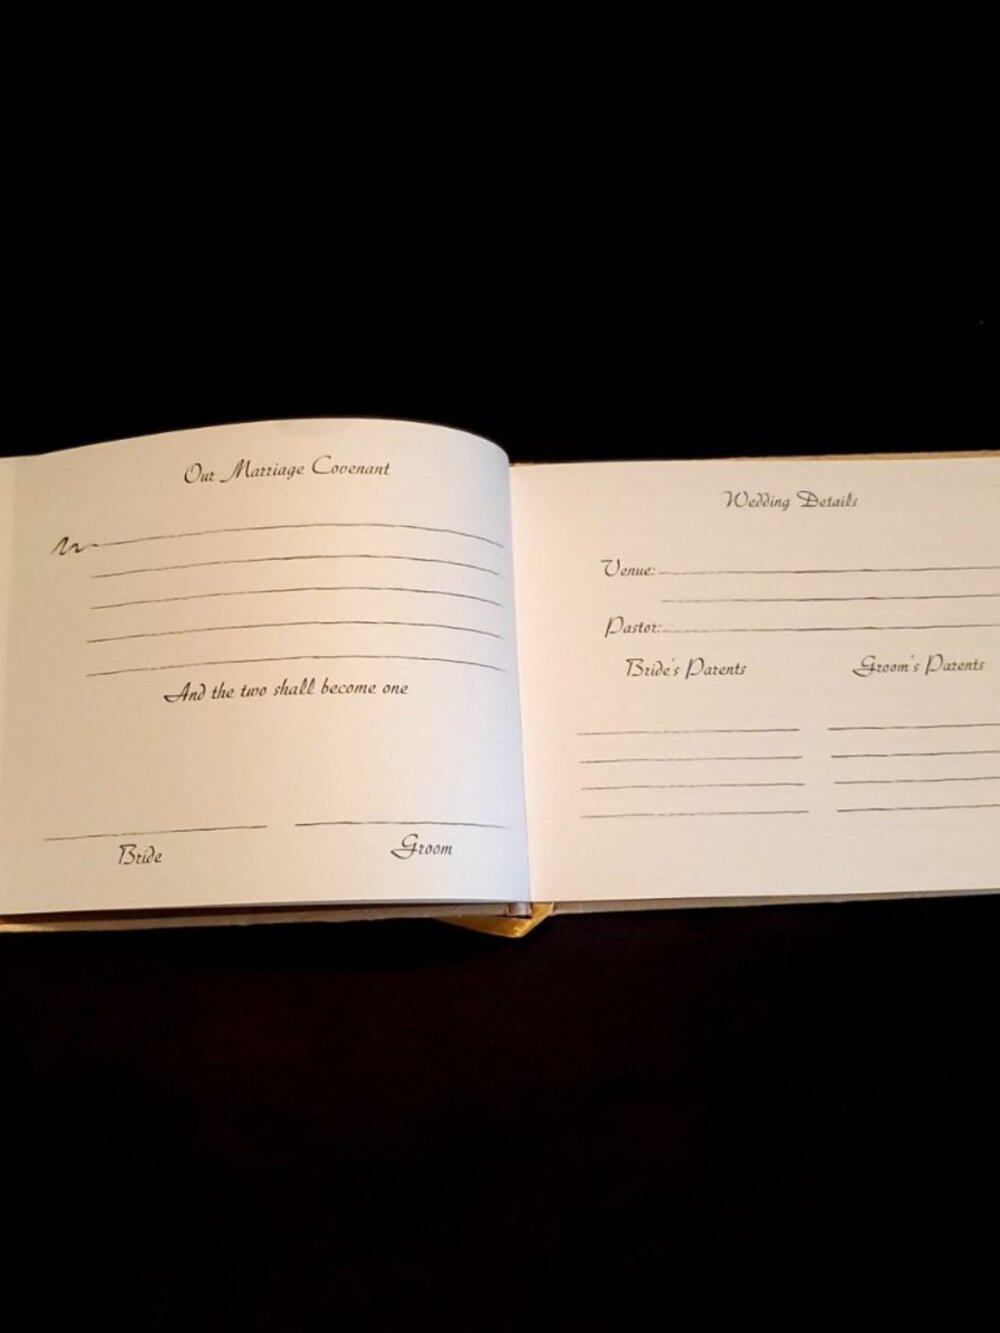 Our Marriage Covenant
And the two shall become one
Bride
Groom
Wedding Details
Venue:
Pastor:
Bride's Parents
Groom's Parents